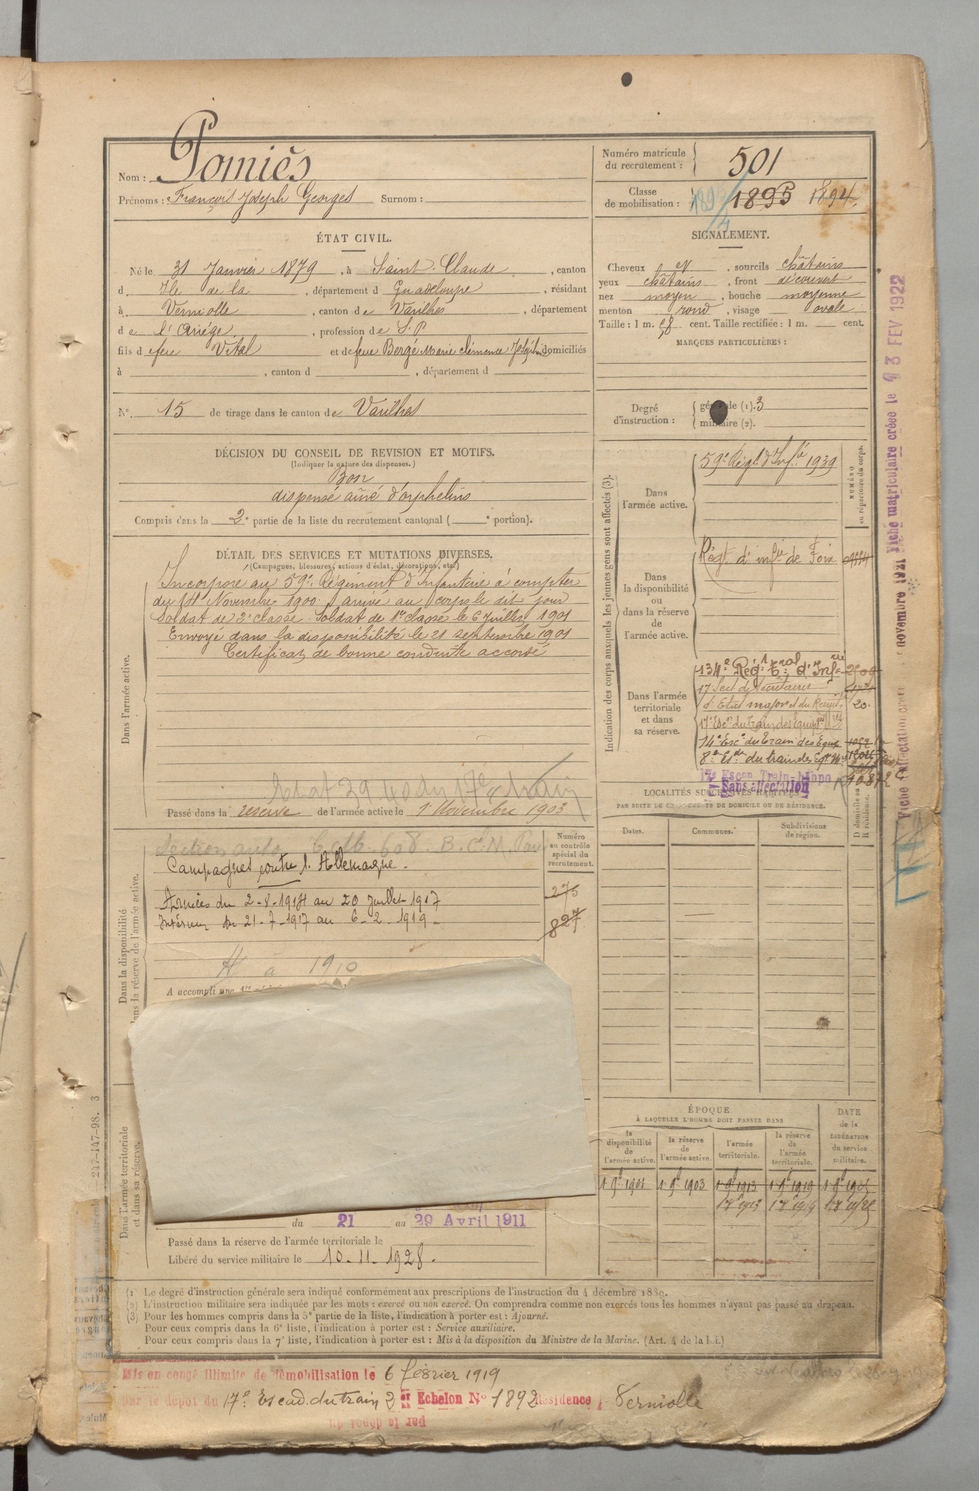 Nom : Pomiès
Prénoms : François Joseph Georges Surnom :
Numéro matricule du recrutement : 501
Classe de mobilisation : 1895 1894.
ÉTAT CIVIL.
Né le 31 Janvier 1879, à Saint-Claude, canton
d Ile de la, département d Guadeloupe, résidant
à Verniolle, canton de Varilhes, département
de l'Ariège, profession de S.P
fils de feu Vital et de feue Bergé Marie Clémence domiciliés
à , canton d , département d
SIGNALEMENT.
Cheveux et, sourcils châtains
yeux châtains, front découvert
nez moyen, bouche moyenne
menton rond, visage ovale
Taille : 1 m. 58 cent. Taille rectifiée : 1 m. cent.
MARQUES PARTICULIÈRES :
N° 15 de tirage dans le canton de Varilhes
Degré d'instruction : générale (1). 3
militaire (2).
DÉCISION DU CONSEIL DE REVISION ET MOTIFS.
(Indiquer la nature des dispenses.)
Bon
dispensé aîné d'orphelins
Compris dans la 2e partie de la liste du recrutement cantonal ( e portion).
DÉTAIL DES SERVICES ET MUTATIONS DIVERSES.
(Campagnes, blessures, actions d'éclat, décorations, etc.)
Dans l'armée active.
Incorporé au 59e Régiment d'Infanterie à compter
du 14 Novembre 1900. arrivé au corps le dit jour
Soldat de 2e classe. Soldat de 1re classe le 6 Juillet 1901
Envoyé dans la disponibilité le 21 septembre 1901
Certificat de bonne conduite accordé
Passé dans la réserve de l'armée active le 1 Novembre 1903
Dans la disponibilité et dans la réserve de l'armée active.
Numéro au contrôle spécial du recrutement.
Campagnes contre l'Allemagne.
Armées du 2-8-1914 au 20 juillet-1917
Intérieur du 21-7-1917 au 6-2-1919-
275
827
A à 1910
A accompli une 1re
Indication des corps auxquels les jeunes gens sont affectés (3).
NUMÉRO au répertoire du corps.
Dans l'armée active.
59e Régt d'Infie 1939
Dans la disponibilité ou dans la réserve de l'armée active.
Régt d'infie de Foix
Dans l'armée territoriale et dans sa réserve.
134e Régt Tal d'Infrie
d'Etat major et du Recrut.
20.
17e Escon du train des Equip.
14e Escon du Train des Equi
8e du train des Eq
Sans affectation
LOCALITÉS SUCCESSIVES HABITÉES
PAR SUITE DE CHANGEMENTS DE DOMICILE OU DE RÉSIDENCE.
Dates.
Communes.
Subdivisions de région.
D domicile ou R résidence.
ÉPOQUE
À LAQUELLE L'HOMME DOIT PASSER DANS
la disponibilité de l'armée active.
la réserve de l'armée active.
l'armée territoriale.
la réserve de l'armée territoriale.
DATE de la LIBÉRATION du service militaire.
1 9bre 1901 1 9bre 1903 1 9bre 1913 1 9bre 1919
Dans l'armée territoriale et dans sa réserve.
du 21 au 29 Avril 1911
Passé dans la réserve de l'armée territoriale le
Libéré du service militaire le 10-11-1928.
(1) Le degré d'instruction générale sera indiqué conformément aux prescriptions de l'instruction du 4 décembre 1889.
(2) L'instruction militaire sera indiquée par les mots : exercé ou non exercé. On comprendra comme non exercés tous les hommes n'ayant pas passé au drapeau.
(3) Pour les hommes compris dans la 5e partie de la liste, l'indication à porter est : Ajourné.
Pour ceux compris dans la 6e liste, l'indication à porter est : Service auxiliaire.
Pour ceux compris dans la 7e liste, l'indication à porter est : Mis à la disposition du Ministre de la Marine. (Art. 4 de la loi.)
Mis en congé illimité de démobilisation le 6 février 1919
par le dépôt du 17e Escad. du train 2e Echelon N° 1892 Résidence Verniolle
par le dépôt du
Fiche matriculaire créée le 3 FEV 1922
novembre 1921
247-147-98. 3